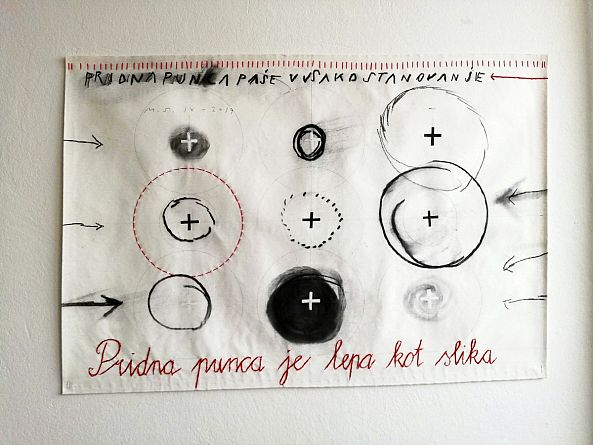 PRIDNA PUNCA PAŠE V VSAKO STANOVANJE
M.S. IX - 2017
Pridna punca je lepa kot slika